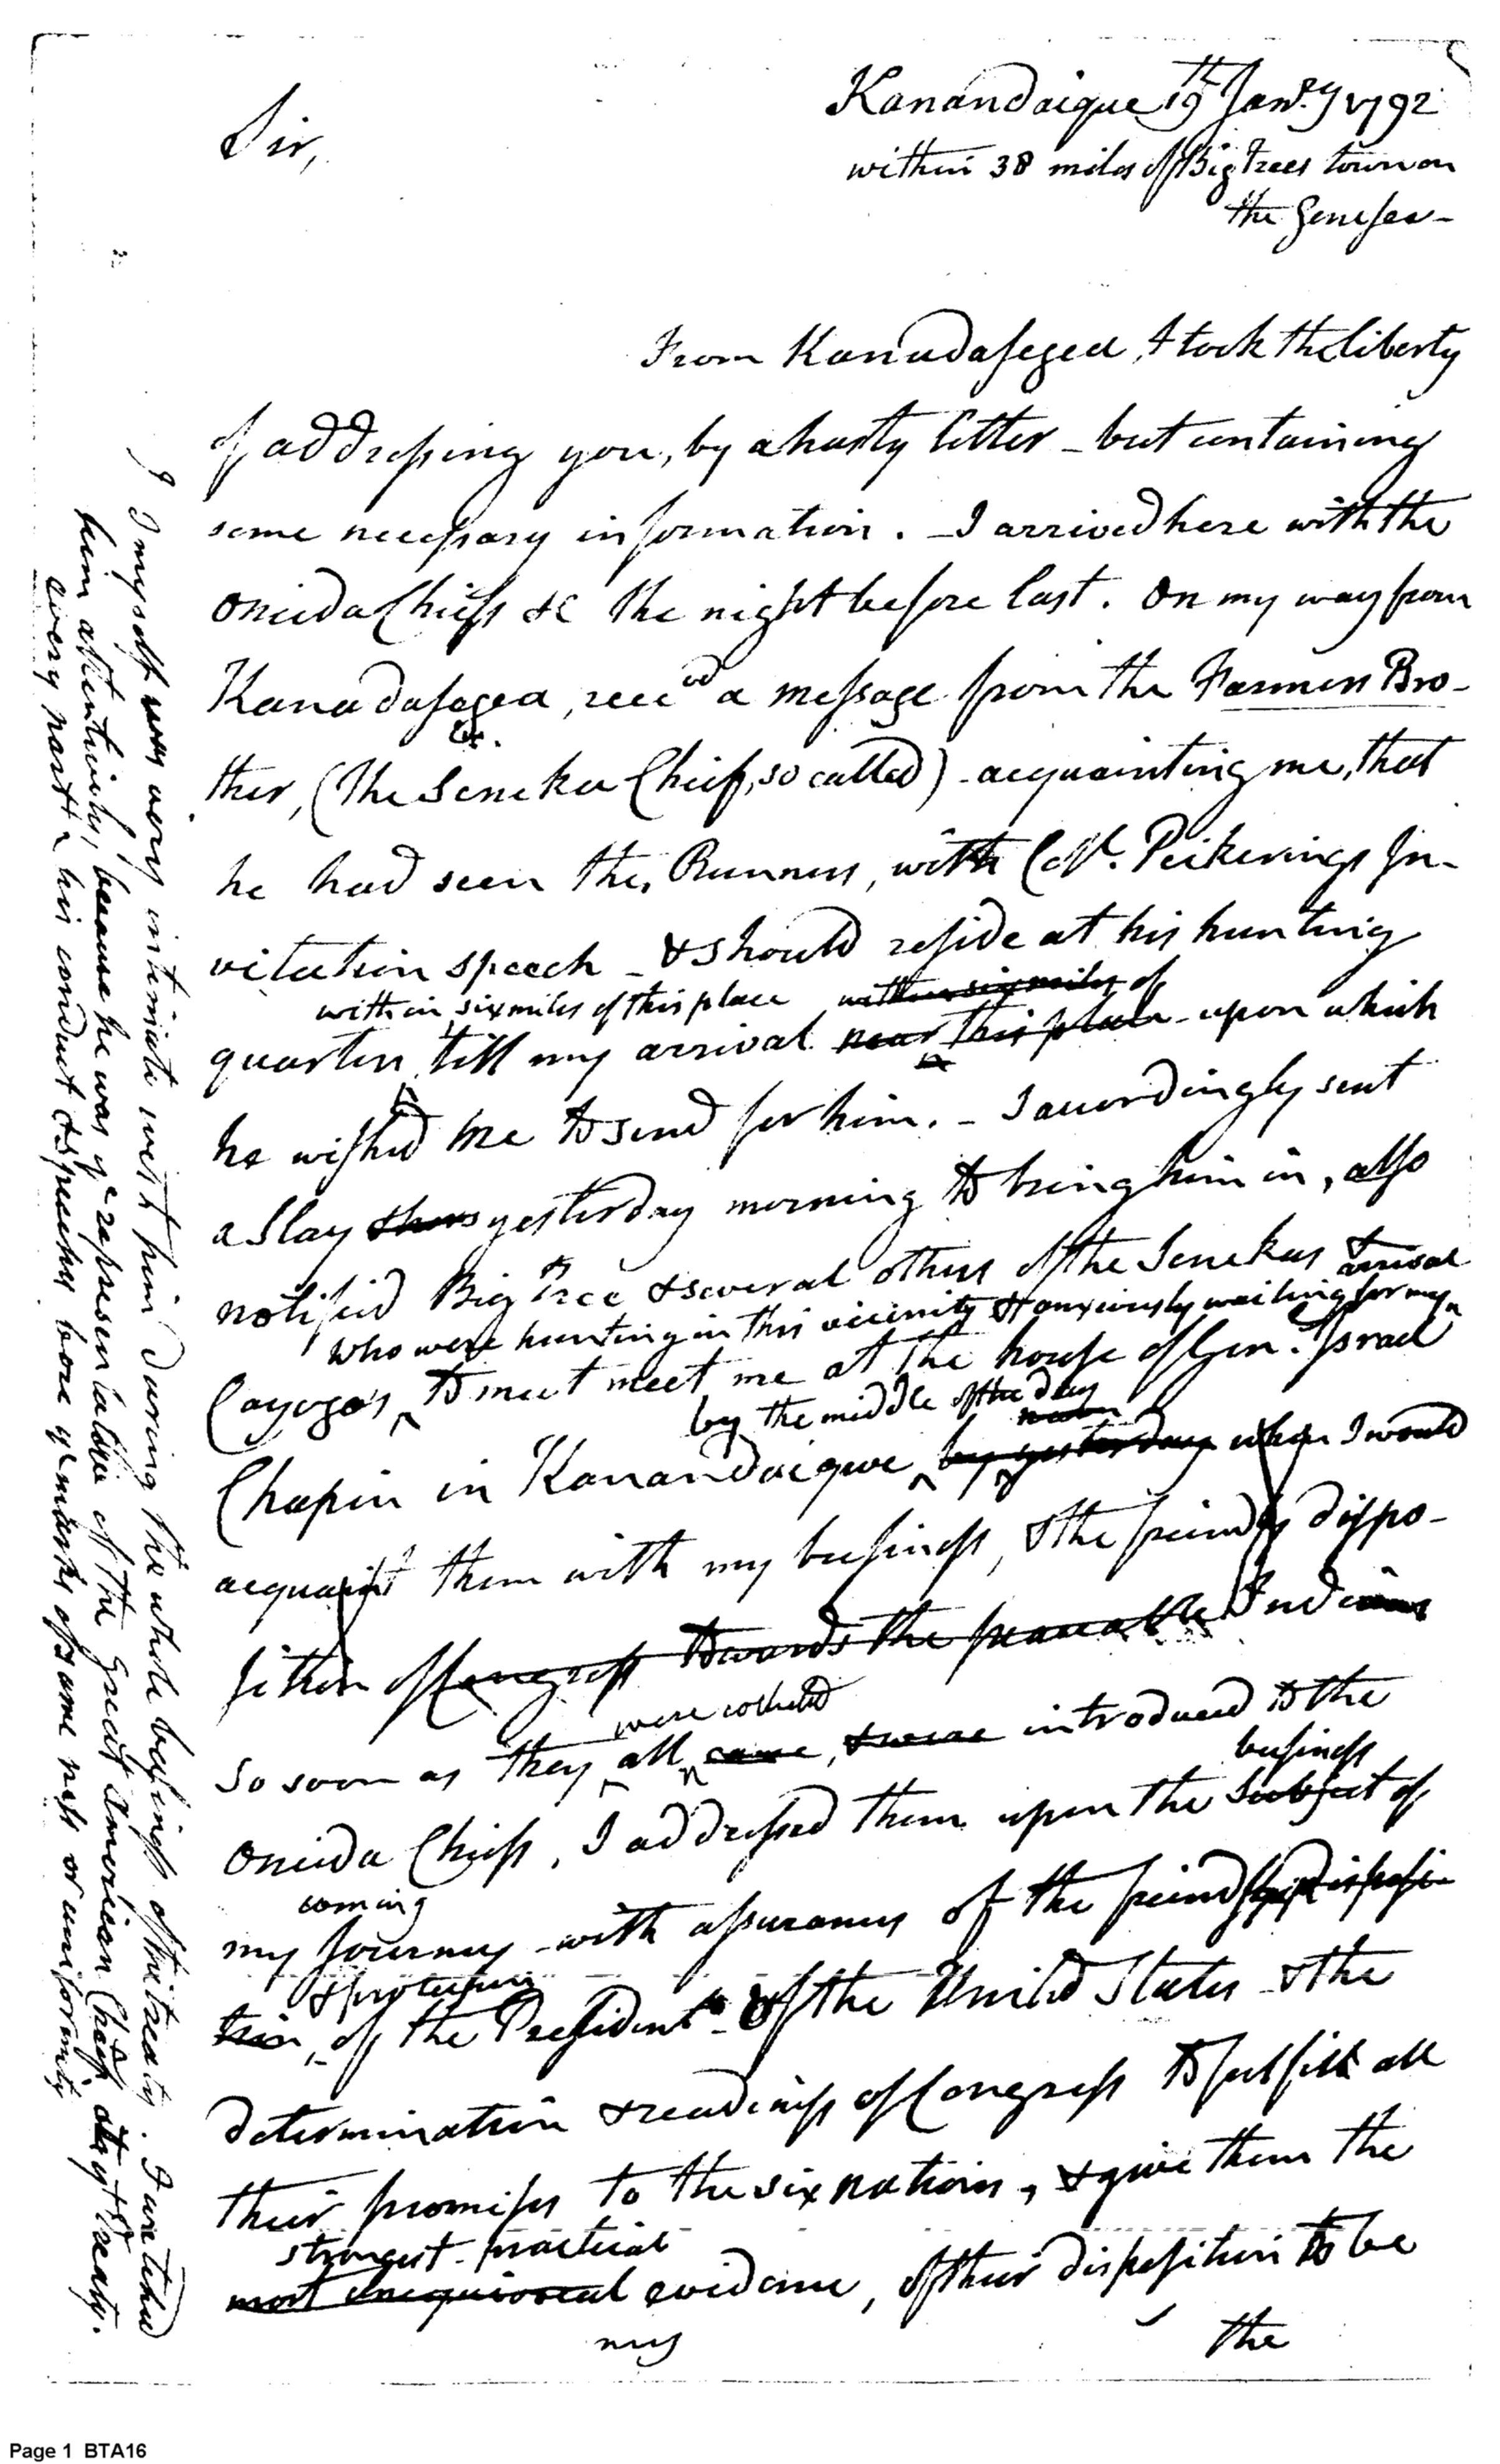 Kanandaique 19th Janry 1792
within 38 miles of Big Trees town on
the Genesee -
Sir,
From Kanadasegea, I took the liberty
of addressing you, by a hasty letter - but containing
some necessary information. - I arrived here with the
Oneida Chiefs &c the night before last. On my way from
Kanadasegea, reced a message from the Farmers Bro-
ther, (the Seneka Chief, so called) - acquainting me, that
he had seen the Runners, with Col. Pickerings In-
vitation speech - & should reside at his hunting
within six miles of this place within six miles of
quarters till my arrival near this place - upon which
he wished me to send for him. - I accordingly sent
a Slay yesterday morning to bring him in, also
notified Big Tree & several others of the Senekas &
arrival
who were hunting in this vicinity & anxiously waiting for my
Cayogas, to meet meet me at the house of Gen. Israel
by the middle of the day
noon
Chapin in Kanandaigue by yesterday when I would
acquaint them with my business, & the friendly dispo-
sition of Congress towards the peaceable Indians
were collected
so soon as they all came, & were introduced to the
business
Oneida Chiefs, I addressed them upon the subject of
coming
my Journey - with assurances of the friendship disposi-
& protection
tion, of the President - of the United States - & the
determination & readiness of Congress to fulfill all
their promises to the six nations, & give them the
strongest - practical
most unequivocal evidence, of their disposition to be
my
the
I myself was very intimate with him during the whole business of the treaty. I watched
him attentively, because he was ye representative of the Great American Chief, at yt treaty.
every part of his conduct & speeches bore ye marks of sameness or uniformity
Page 1 BTA16